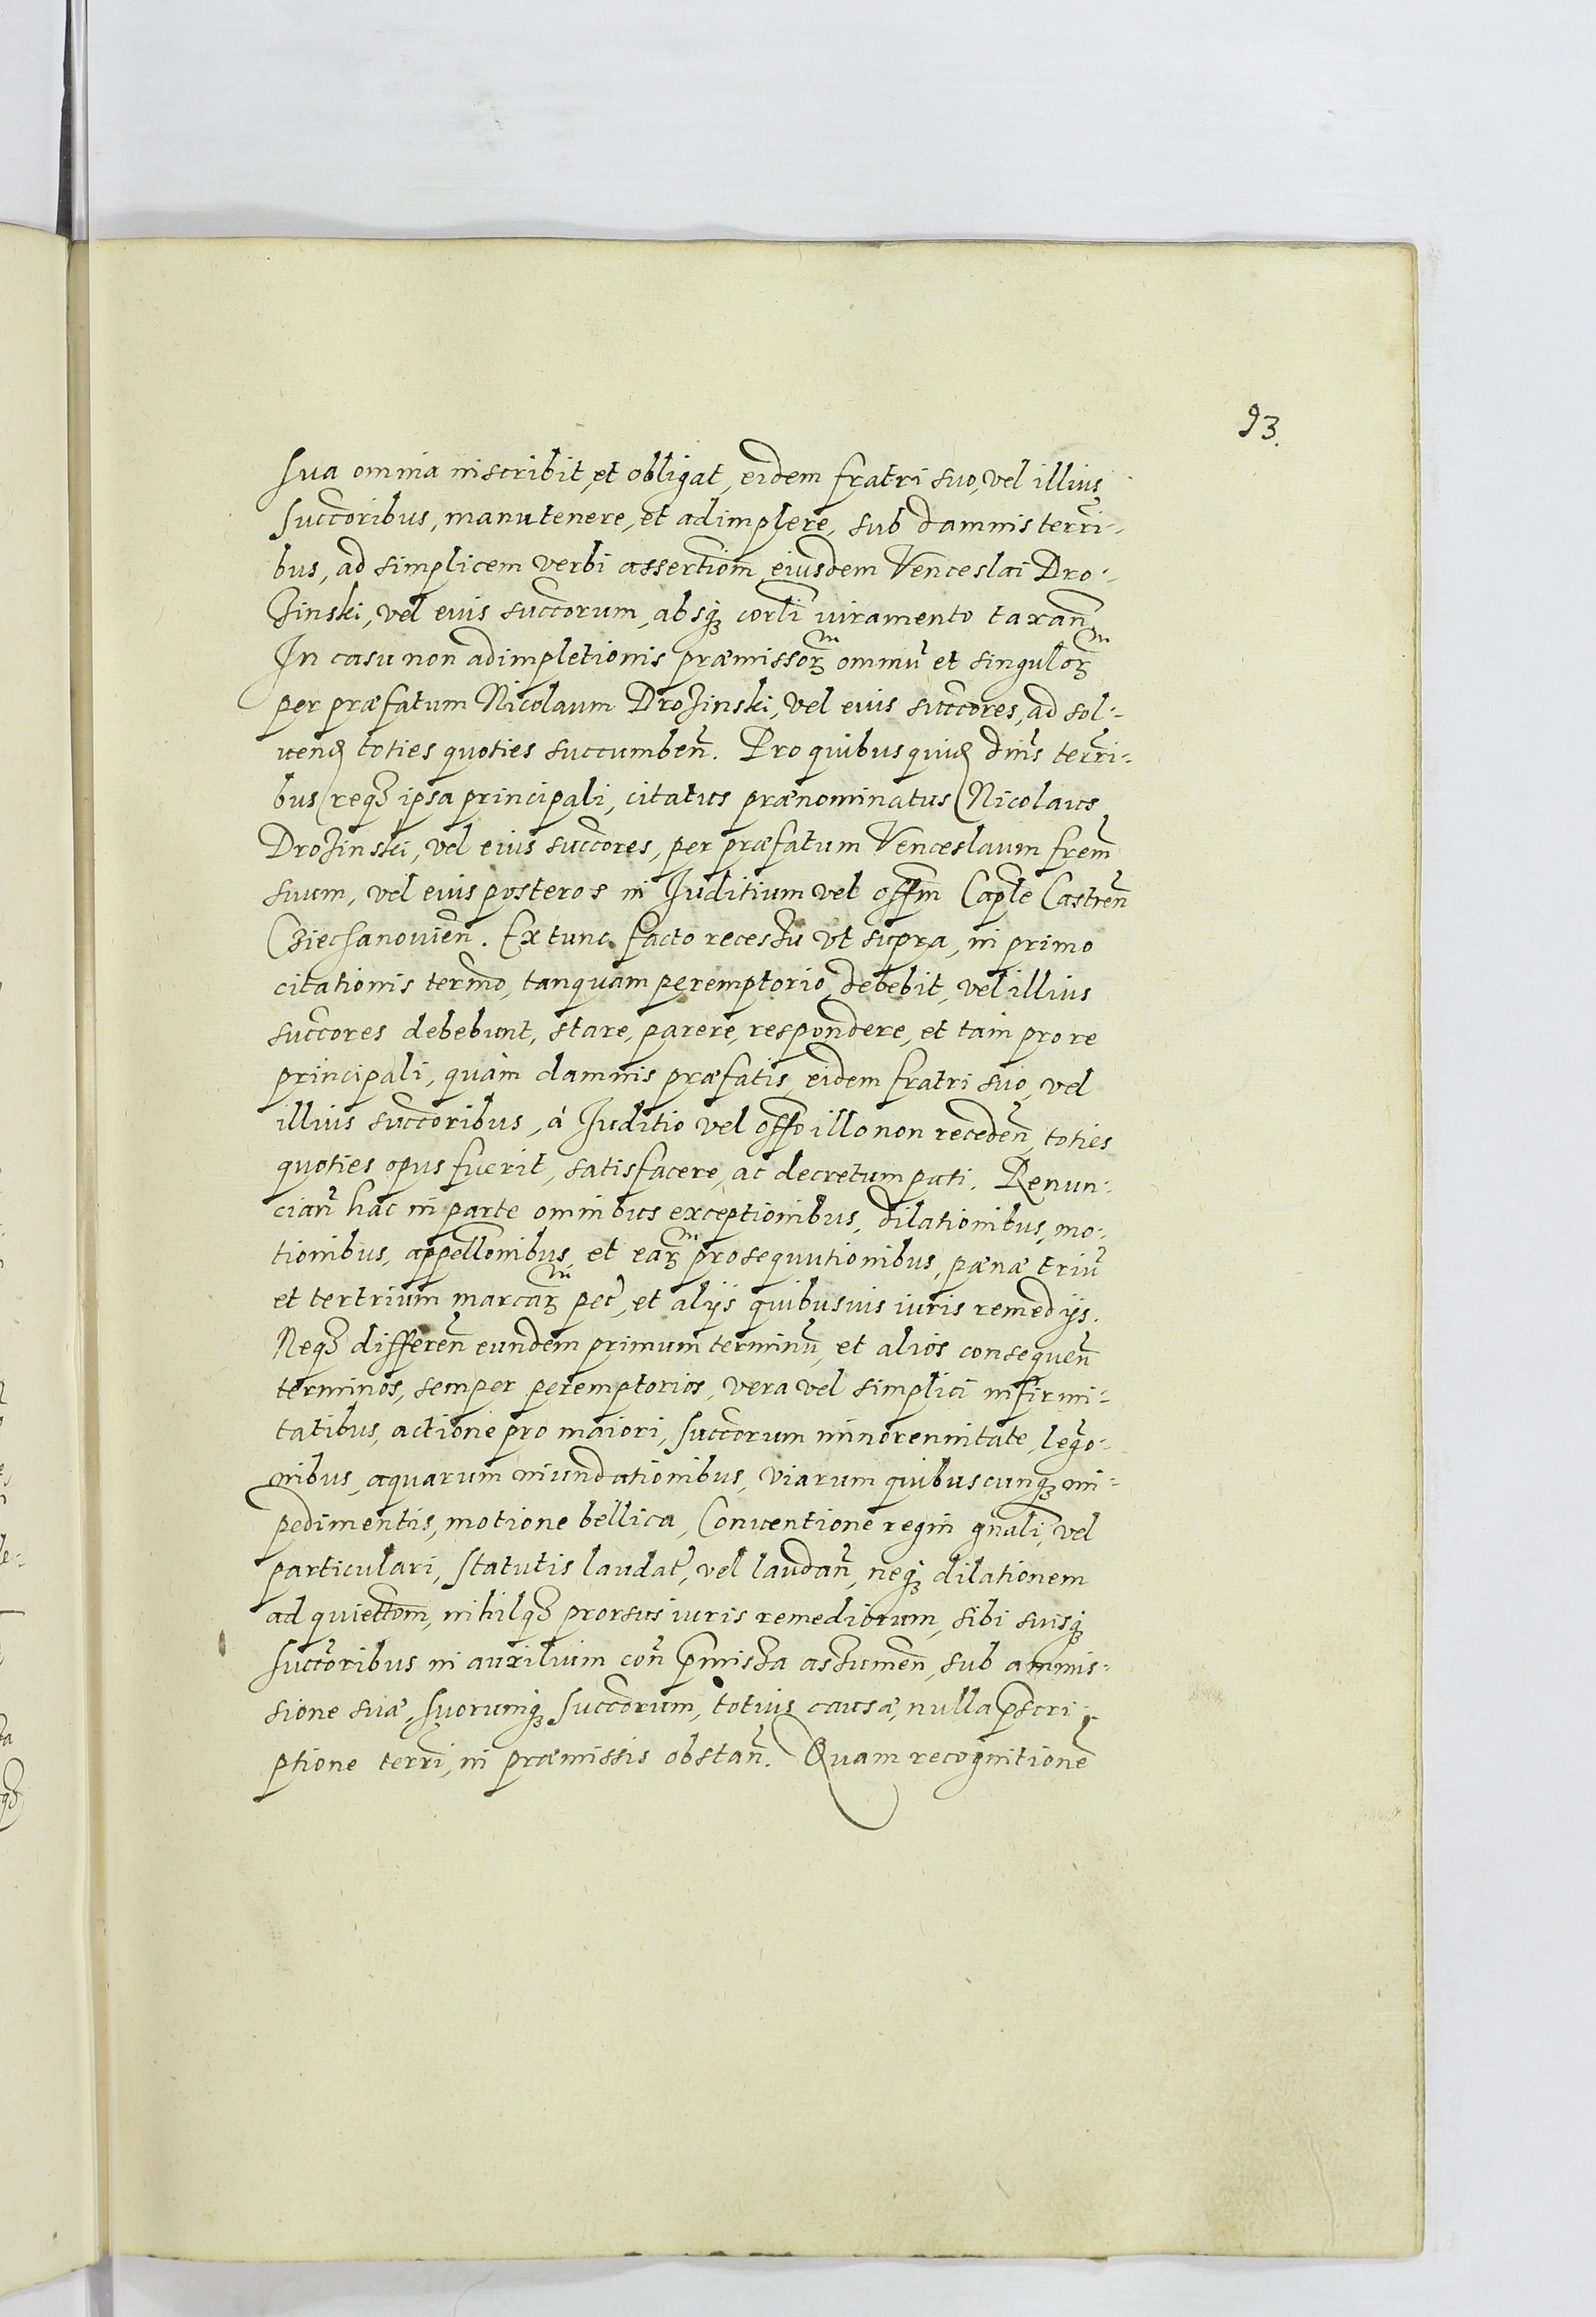 93.
sua omnia inscribit, et obligat, eidem fratri suo, vel illius
succoribus, manutenere, et adimplere, sub damnis terri-
bus, ad simplicem verbi assertiom̃ eiusdem Venceslai Dro-
zinski, vel eius succorum, absq₃ corli iuramento taxañ.
In casu non adimpletionis præmissorꝫ omniũ et singulorꝫ
per præfatum Nicolaum Drozinski, vel eius succores, ad sol-
uend toties quoties succumbeñ. Pro quibus quid dñis terri-
bus (req₃ ipsa principali, citatus prænominatus (Nicolaus
Drozinski, vel eius succores, per præfatum Venceslaum frem̃
suum, vel eius posteros in Iuditium vel offm̃ Caple Castreñ
Cziechanouieñ. Ex tunc facto recessu vt supra, in primo
citationis termo, tanquam peremptorio, debebit, vel illius
succores debebunt, stare, parere, respondere, et tam pro re
principali, quàm damnis præfatis, eidem fratri suo, vel
illius succoribus, á Iuditio vel offo illo non recedeñ, toties
quoties opus fuerit, satisfacere, ac decretum pati. Renun-
ciañ hac in parte omnibus exceptionibus, dilationibus, mo-
tionibus, appellonibus, et earꝫ prosequutionibus, pænæ triũ
et tertrium marcarꝫ pec, et alijs quibusuis iuris remedijs.
Neq₃ differeñ eundem primum terminũ, et alios consequeñ
terminos, semper peremptorios, vera vel simplici infirmi-
tatibus, actione pro maiori, succorum minorennitate, lego-
nibus, aquarum inundationibus, viarum quibuscunq₃ im-
pedimentis, motione bellica, Conuentione regni gnali, vel
particulari, statutis laudat, vel laudañ, neq₃ dilationem
ad quiettom̃, nihilq₃ prorsus iuris remediorum, sibi suisq₃
succoribus in auxilium coñ p̃missa assumeñ, sub ammis-
sione suæ, suorumq₃ succorum, totius causæ, nulla p̃scri-
ptione terri, in præmissis obstañ. Quam recognitionẽ